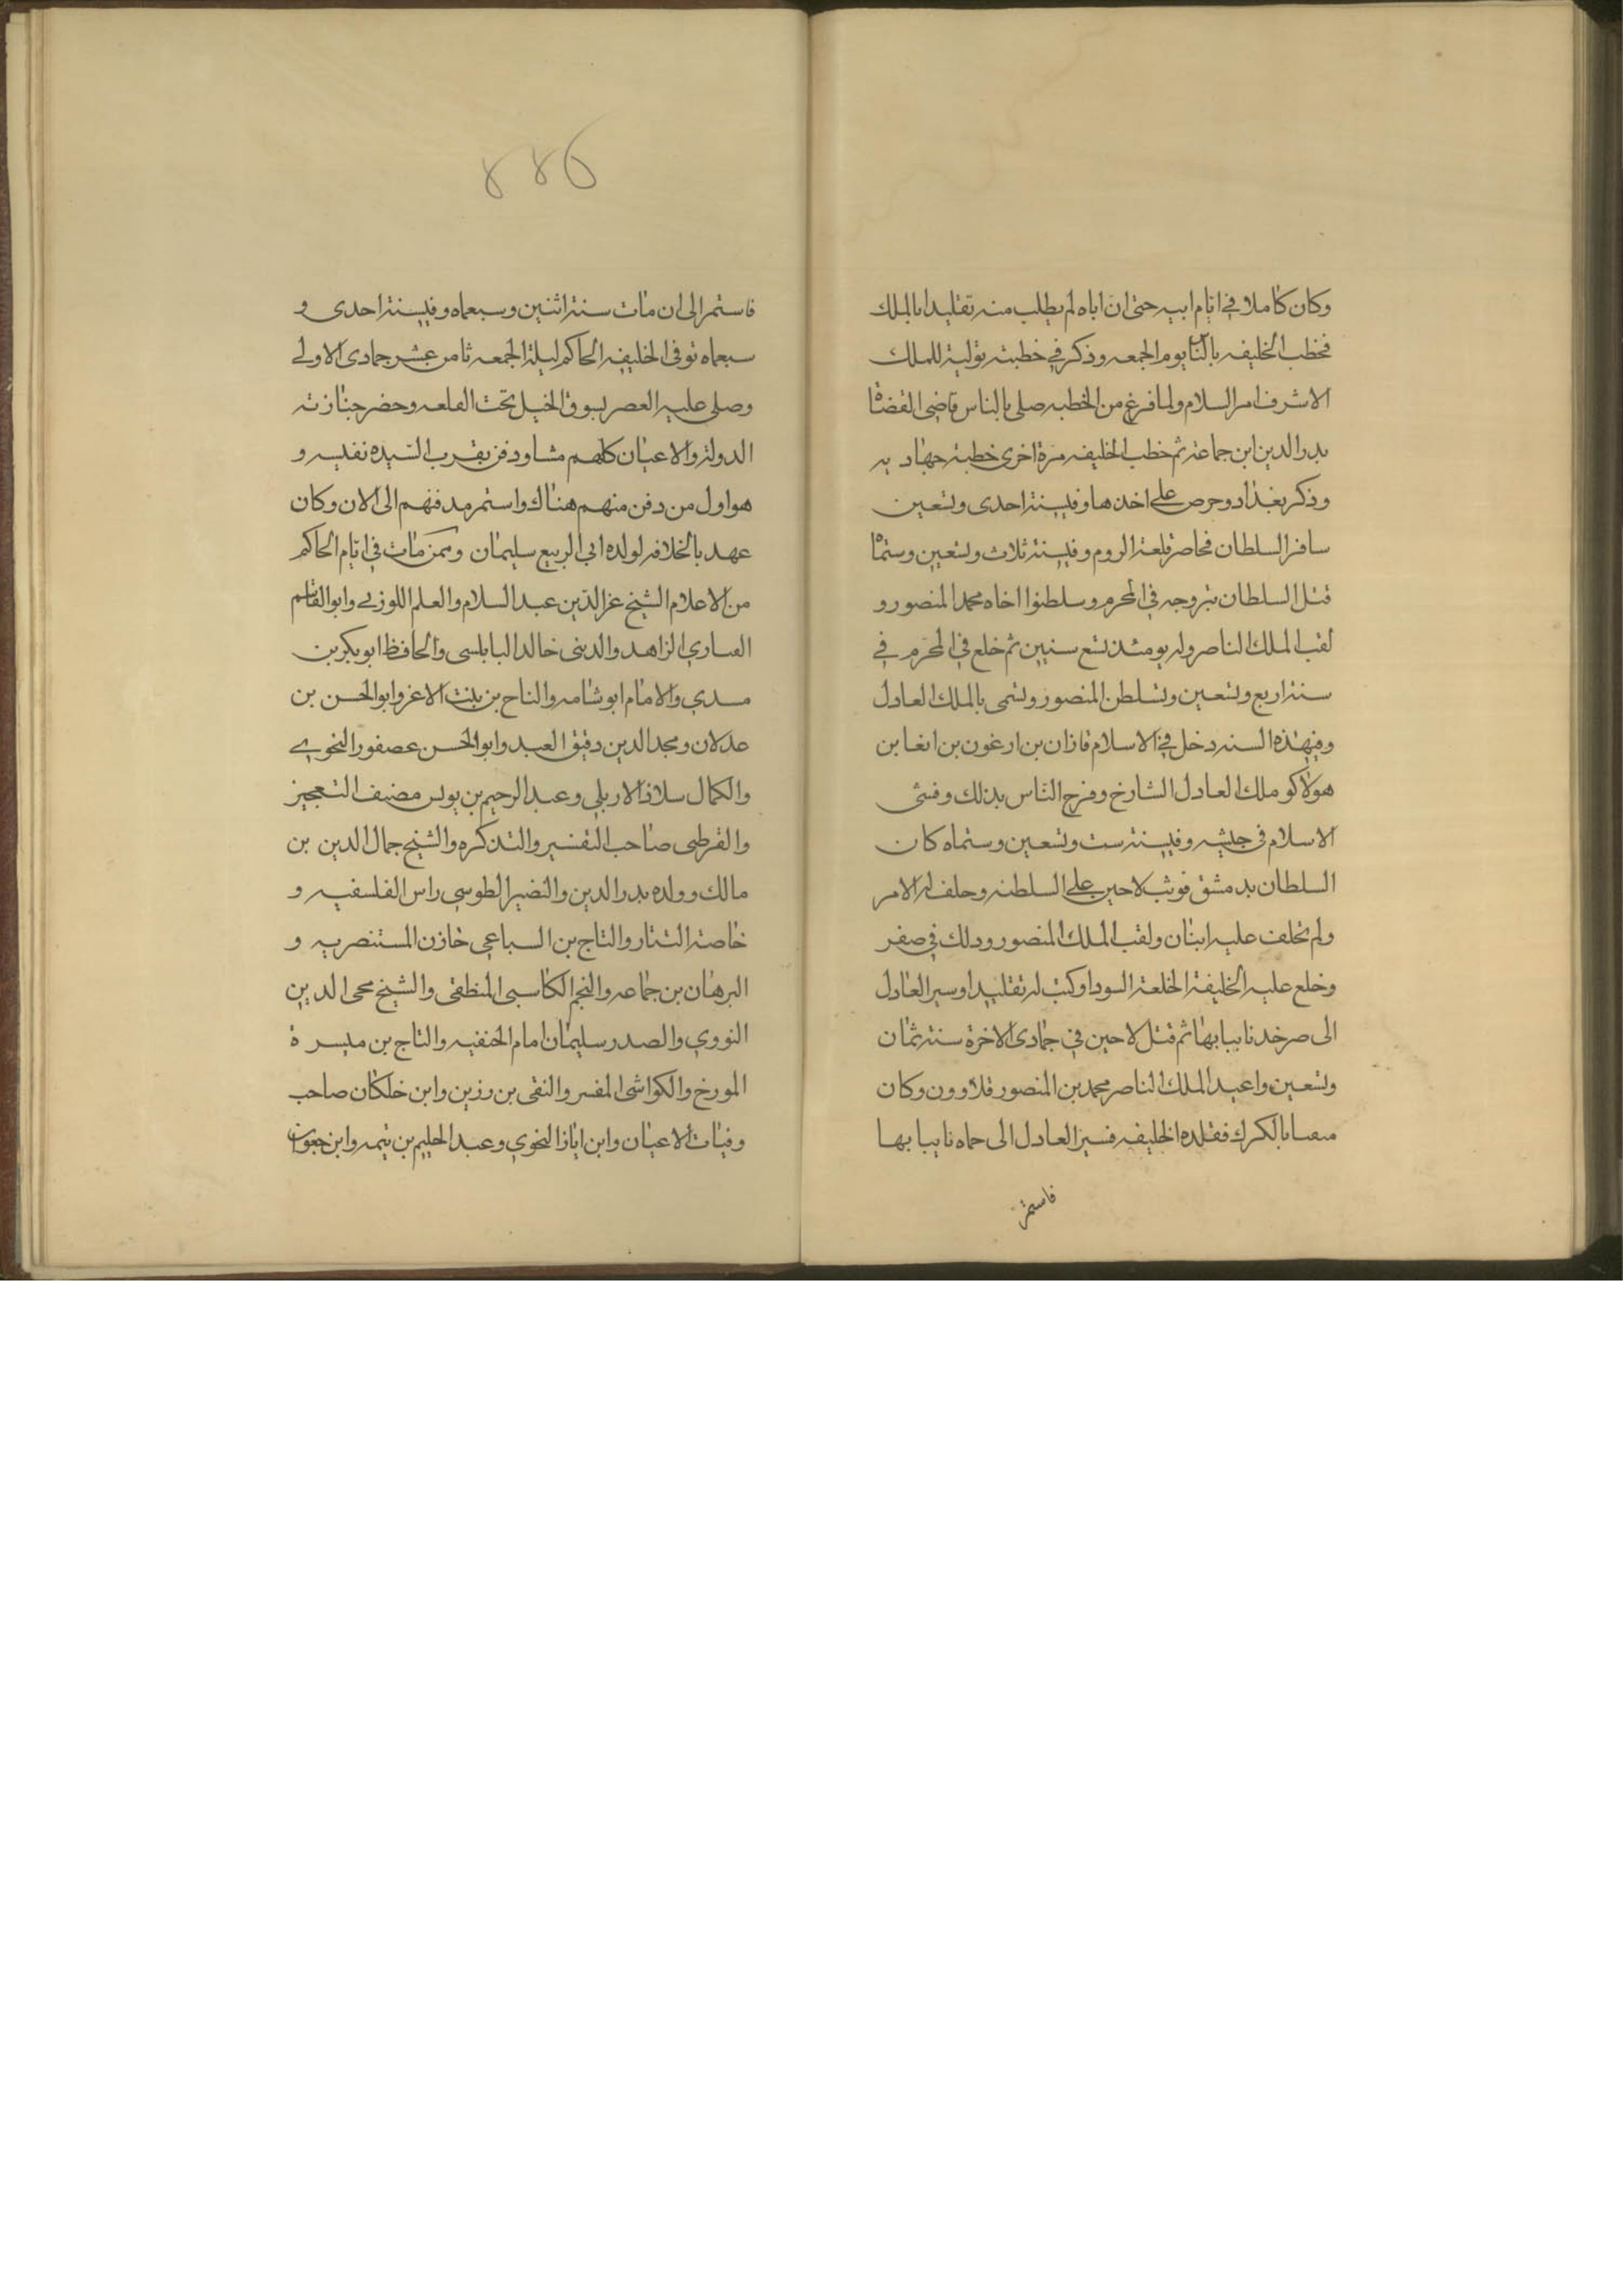 وكان كاملا في ايام ابيه حتى ان اباه لم يطلب منه تقليدا بالملك
فخطب الخليفه بالنا يوم الجمعه وذكر في خطبته توليته للملك
الاشرف امر السلام ولما فرغ من الخطبه صلى بالناس قاضى القضاة
بدر الدين ابن جماعة ثم خطب الخليفه مرة اخرى خطبة جهاديه
وذكر بغداد وحرص على اخذها وفي سنة احدى وتسعين
سافر السلطان فحاصر قلعة الروم وفي سنة ثلاث وتسعين وستماة
قتل السلطان بتروجه في المحرم وسلطنوا اخاه محمد المنصور و
لقب الملك الناصر وله يومئذ تسع سنين ثم خلع في المحرم في
سنة اربع وتسعين وتسلطن المنصور وتسمى بالملك العادل
وفي هذه السنه دخل في الاسلام قازان بن ارغون بن ابغا بن
هولاكو ملك العادل الشارخ وفرح الناس بذلك وفشى
الاسلام في جيشه وفي سنة ست وتسعين وستماه كان
السلطان بدمشق فوثب لاحين على السلطنه وحلف له الامر
ولم يختلف عليه اثنان ولقب الملك المنصور ودلك في صفر
وخلع عليه الخليفة الخلعة السودا وكتب له تقليدا وسير العادل
الى صرخد نايبا بها ثم قتل لاحين في جمادى الاخرة سنة ثمان
وتسعين واعيد الملك الناصر محمد بن المنصور قلاوون وكان
منفيا بالكرك فقلده الخليفه فسير العادل الى حماه نايبا بها
فاستمر
٤٤٦
فاستمر الى ان مات سنة اثنين وسبعماه وفي سنة احدى و
سبعماه توفى الخليفه الحاكم ليلة الجمعه ثامن عشر جمادى الاولى
وصلى عليه العصر بسوق الخيل تحت القلعه وحضر جنازته
الدولة والاعيان كلهم مشاو دفن بقرب السيده نفيسه و
هو اول من دفن منهم هناك واستمر مدفنهم الى الان وكان
عهد بالخلافه لولده ابى الربيع سليمان وممن مات في ايام الحاكم
من الاعلام الشيخ عز الدين عبد السلام والعلم اللوزبى وابو القاسم
الزاهد والدينى خالد البابلسى والحافظ ابو بكر بن
مسدي والامام ابو شامه والتاج بن بنت الاعز وابو الحسن بن
عدلان ومجد الدين دقيق العيد وابو الحسن عصفور النحوي
والكمال سلار الاربلي وعبد الرحيم بن يونس مصنف التعجيز
والقرطبى صاحب التفسير والتذكره والشيخ جمال الدين بن
مالك وولده بدر الدين والنصير الطوسي راس الفلسفيه و
خاصة التتار والتاج بن السباعي خازن المستنصريه و
البرهان بن جماعه والنجم الكاسبى المنطقى والشيخ محى الدين
النووي والصدر سليمان امام الحنفيه والتاج بن ميسرة
المورخ والكواشى المفسر والتقى بن رزين وابن خلكان صاحب
وفيات الاعيان وابن اياز النحوي وعبد الحليم بن تيمه وابن جعوان